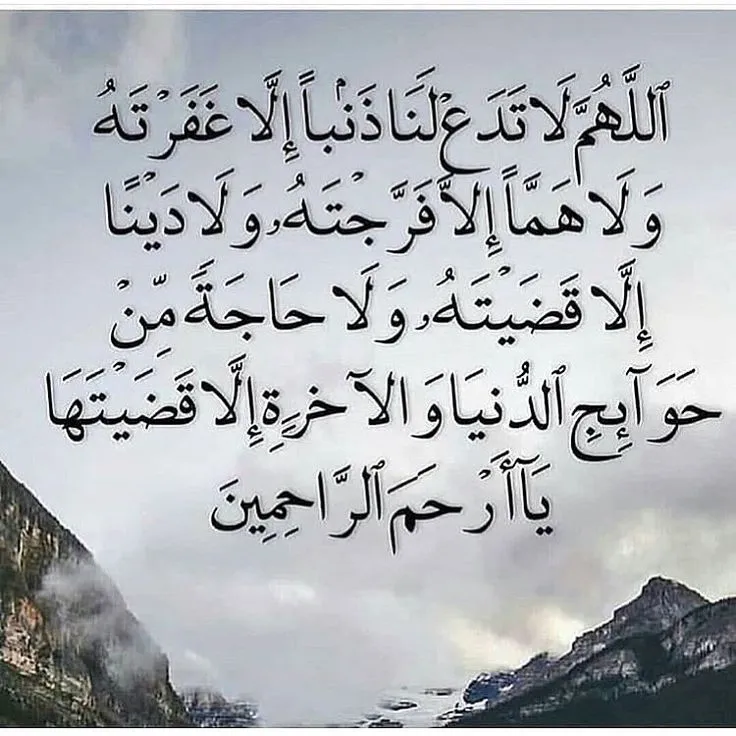 ٱللَّهُمَّ لَا تَدَعْ لَنَا ذَنْباً إِلَّا غَفَرْتَهُ
وَلَا هَمَّاً إِلاَّ فَرَّجْتَهُۥ وَلَا دَيْنًا
إِلَّا قَضَيْتَهُۥ وَلَا حَاجَةً مِّنْ
حَوَآئِجِ ٱلدُّنيَا وَالآخرِةِ إِلَّا قَضَيْتَهَا
يَآأَرْحَمَ ٱلرَّاحِمِينَ